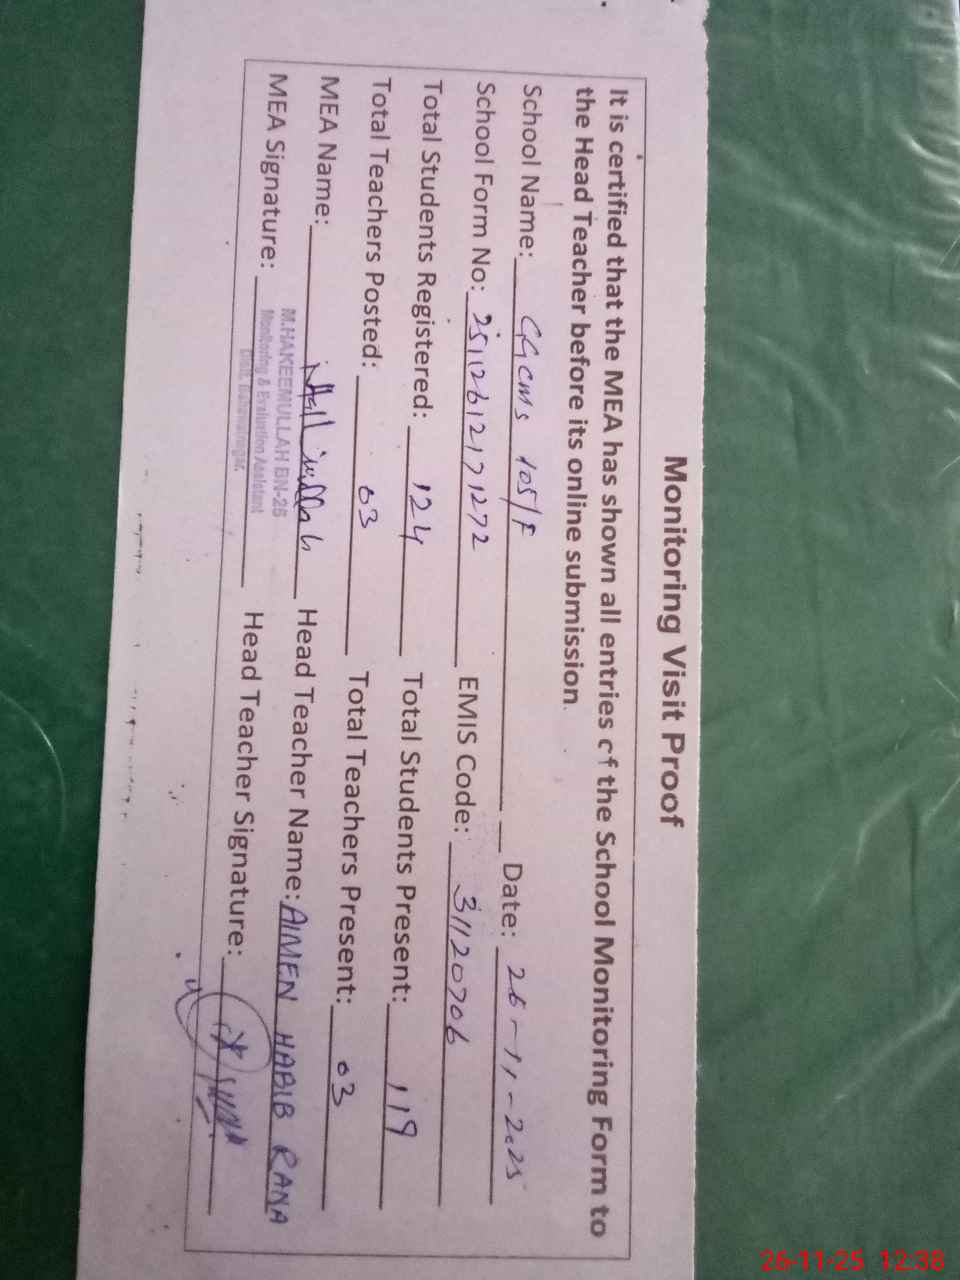 Monitoring Visit Proof
It is certified that the MEA has shown all entries of the School Monitoring Form to
the Head Teacher before its online submission.
School Name: GGCMS 105/F Date: 26-11-2025
School Form No: 25112612171272 EMIS Code: 31120706
Total Students Registered: 124 Total Students Present: 119
Total Teachers Posted: 03 Total Teachers Present: 03
MEA Name: Head Teacher Name: AIMEN HABIB RANA
MEA Signature: Head Teacher Signature:
M.HAKEEMULLAH BN-26
Monitoring & Evaluation Assistant
Distt. Bahawalnagar.
26-11-25 12:38